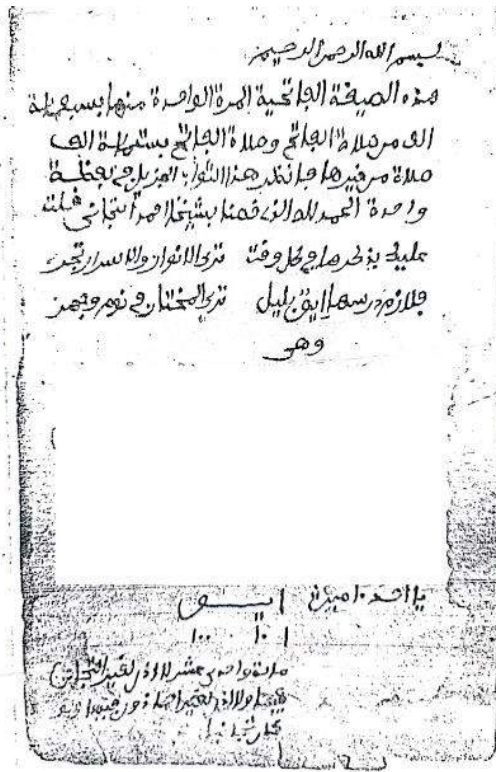 بسم الله الرحمن الرحيم
هذه الصيغة الفاتحية المرة الواحدة منها بسبعمائة
الف من صلاة الفاتح وصلاة الفاتح بستمائة الف
صلاة من غيرها فانظر هذا الثواب الجزيل في لحظة
واحدة الحمد لله الذي خصنا بشيخنا احمد التجاني
عليك بذكرها في كل وقت ترى الانوار والاسرار تجر
فلازم درسها ليل ترى المختار في نوم وجهر
وهي
يا الله امين ايق
١ ١٠ ١٠٠
مائة واحدى عشر لا اذن لغير
فيها ولا اذن لغير